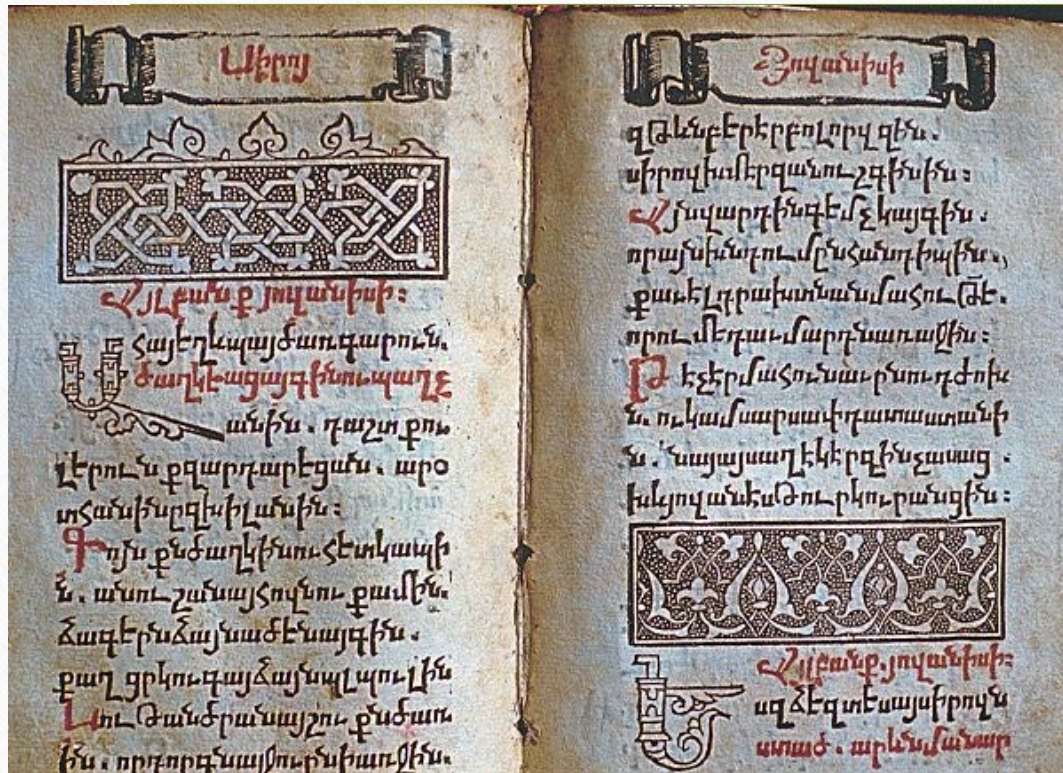 Սիրոյ
Այլ բանք յովանիսի:
Ահա եղև պայծառ գարուն.
ծաղկեաց այգին ու պաղչ
անին. դաշտ քու
լերունն քզարդարեցան. արօ
տ հանին ըզխիլանին:
Գոյն քն ծաղկին ու հետ կապի
ն. անուշ անայ հովն ու քամին.
ձագերն ձայն ածեն այգին.
քաղցրկու գայ ձայն պլպուլին
Նու թանծրանայ շուքն ծառ
ին. որդորգնայ ջուրն ի առջին.
Յովանիսի
զթևն բերեր բոլորվ զին.
սիրով խմեր զանուշ գինին:
Այս վարդին գէմ չկայ գին.
որ այն խնդումըն հանդիպին.
քան ել դրախտն անմահութե.
որում եդաւ մարդն առաջին:
Թէ չէր մահուն աւրն ու դժոխ
ն. ու կամ սարսափ դատաստանի
ն. նայ այս աղէկ էր զինչ ասաց.
խև յովանէս թուրկուրանցին:
Այլ բանք. յովանիսի:
Ես զձեզ տեսայ սիրովն
ստած. արևն մանար